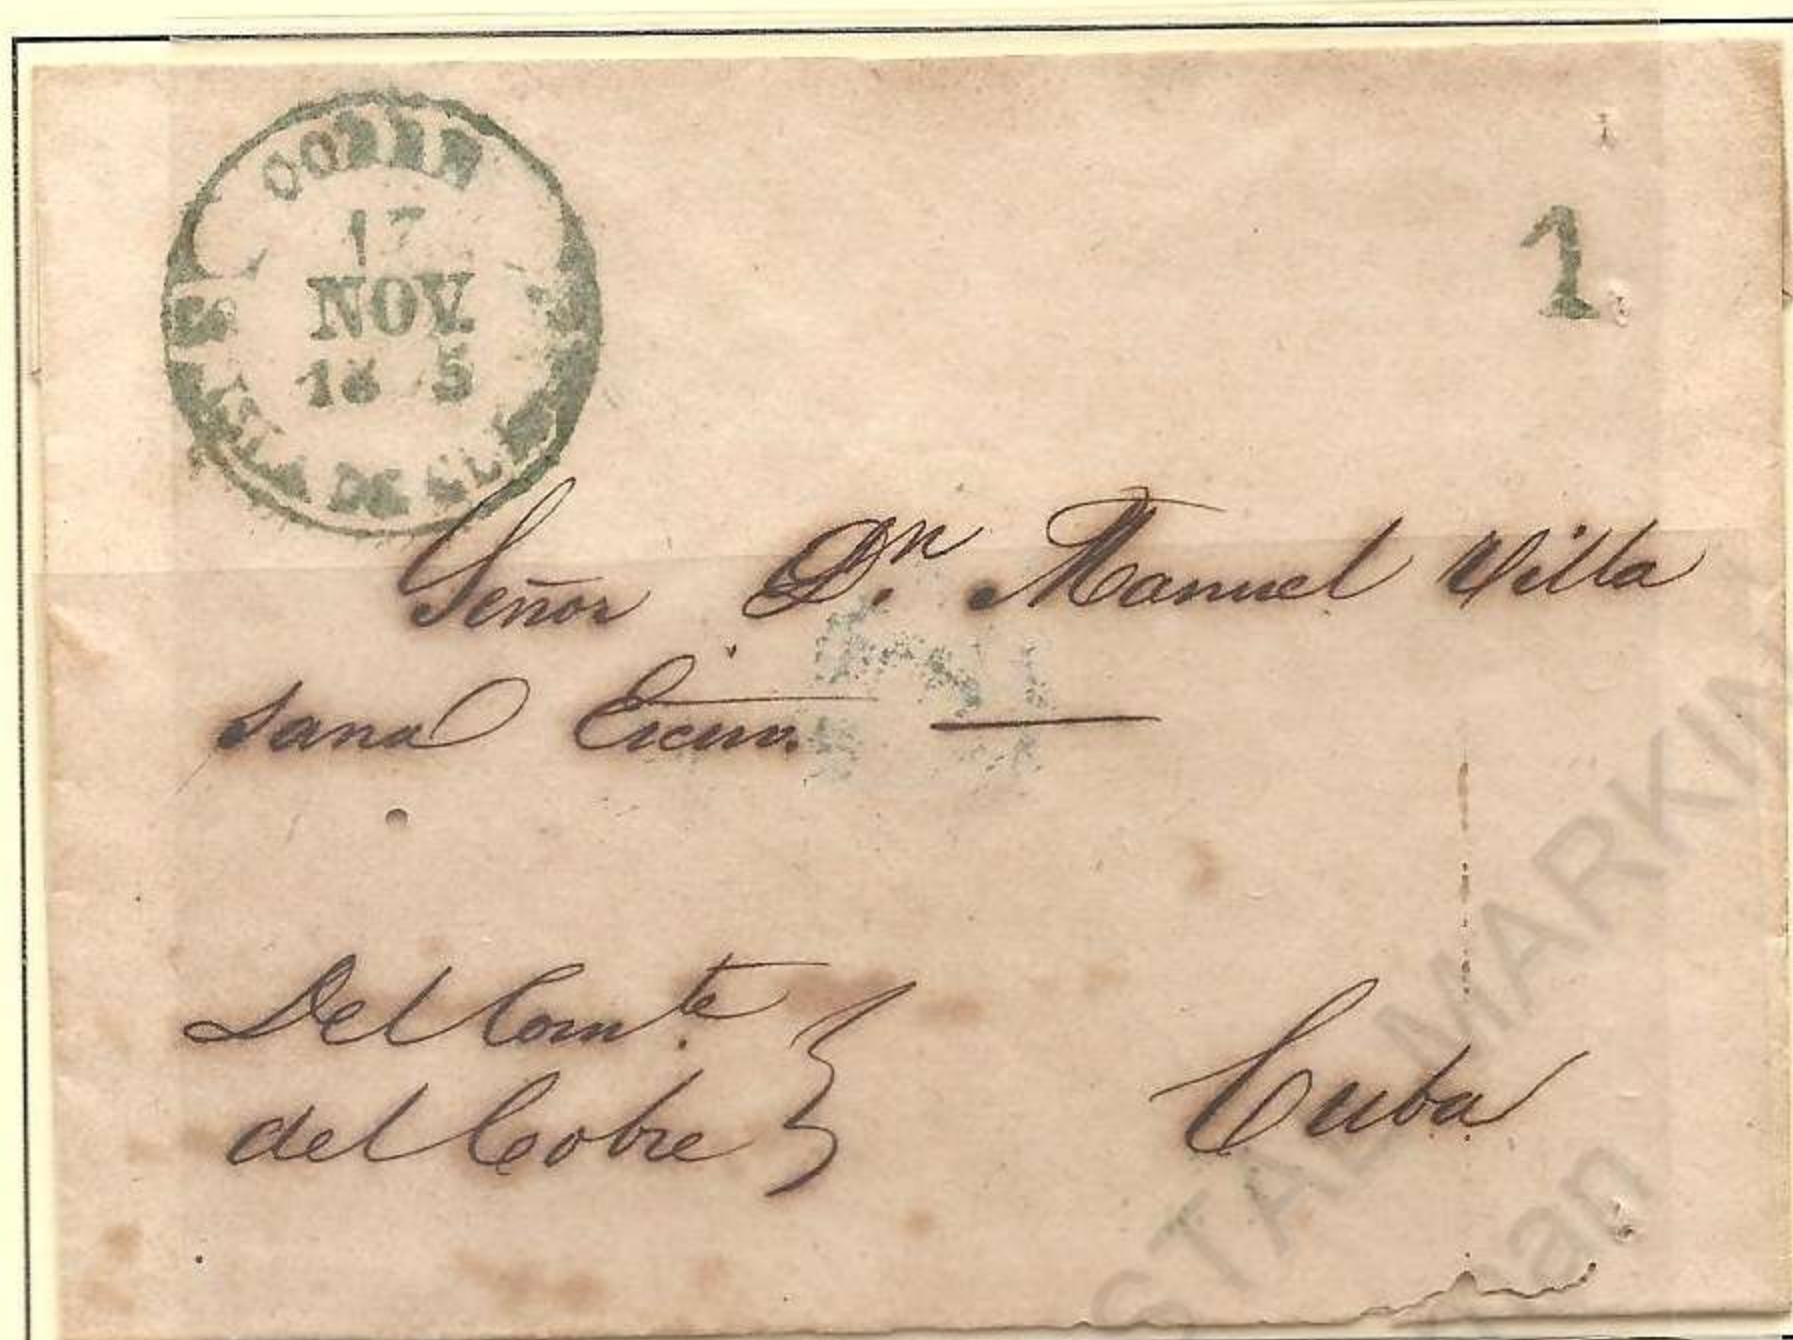 COBRE
17
NOV.
18 5
ISLA DE CUBA
1
Señor Dn. Manuel Villa
sana Escno.
Del Comte.
del Cobre
Cuba
STAL MARKIN
man